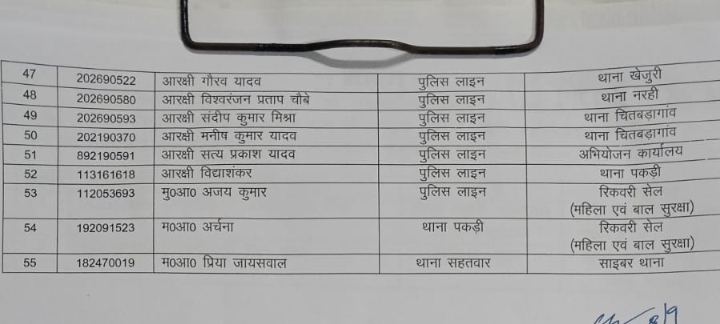 47 202690522 आरक्षी गौरव यादव पुलिस लाइन थाना खेजुरी
48 202690580 आरक्षी विश्वरंजन प्रताप चौबे पुलिस लाइन थाना नरही
49 202690593 आरक्षी संदीप कुमार मिश्रा पुलिस लाइन थाना चितबड़ागांव
50 202190370 आरक्षी मनीष कुमार यादव पुलिस लाइन थाना चितबड़ागांव
51 892190591 आरक्षी सत्य प्रकाश यादव पुलिस लाइन अभियोजन कार्यालय
52 113161618 आरक्षी विद्याशंकर पुलिस लाइन थाना पकड़ी
53 112053693 मु0आ0 अजय कुमार पुलिस लाइन रिकवरी सेल
(महिला एवं बाल सुरक्षा)
54 192091523 म0आ0 अर्चना थाना पकड़ी रिकवरी सेल
(महिला एवं बाल सुरक्षा)
55 182470019 म0आ0 प्रिया जायसवाल थाना सहतवार साइबर थाना